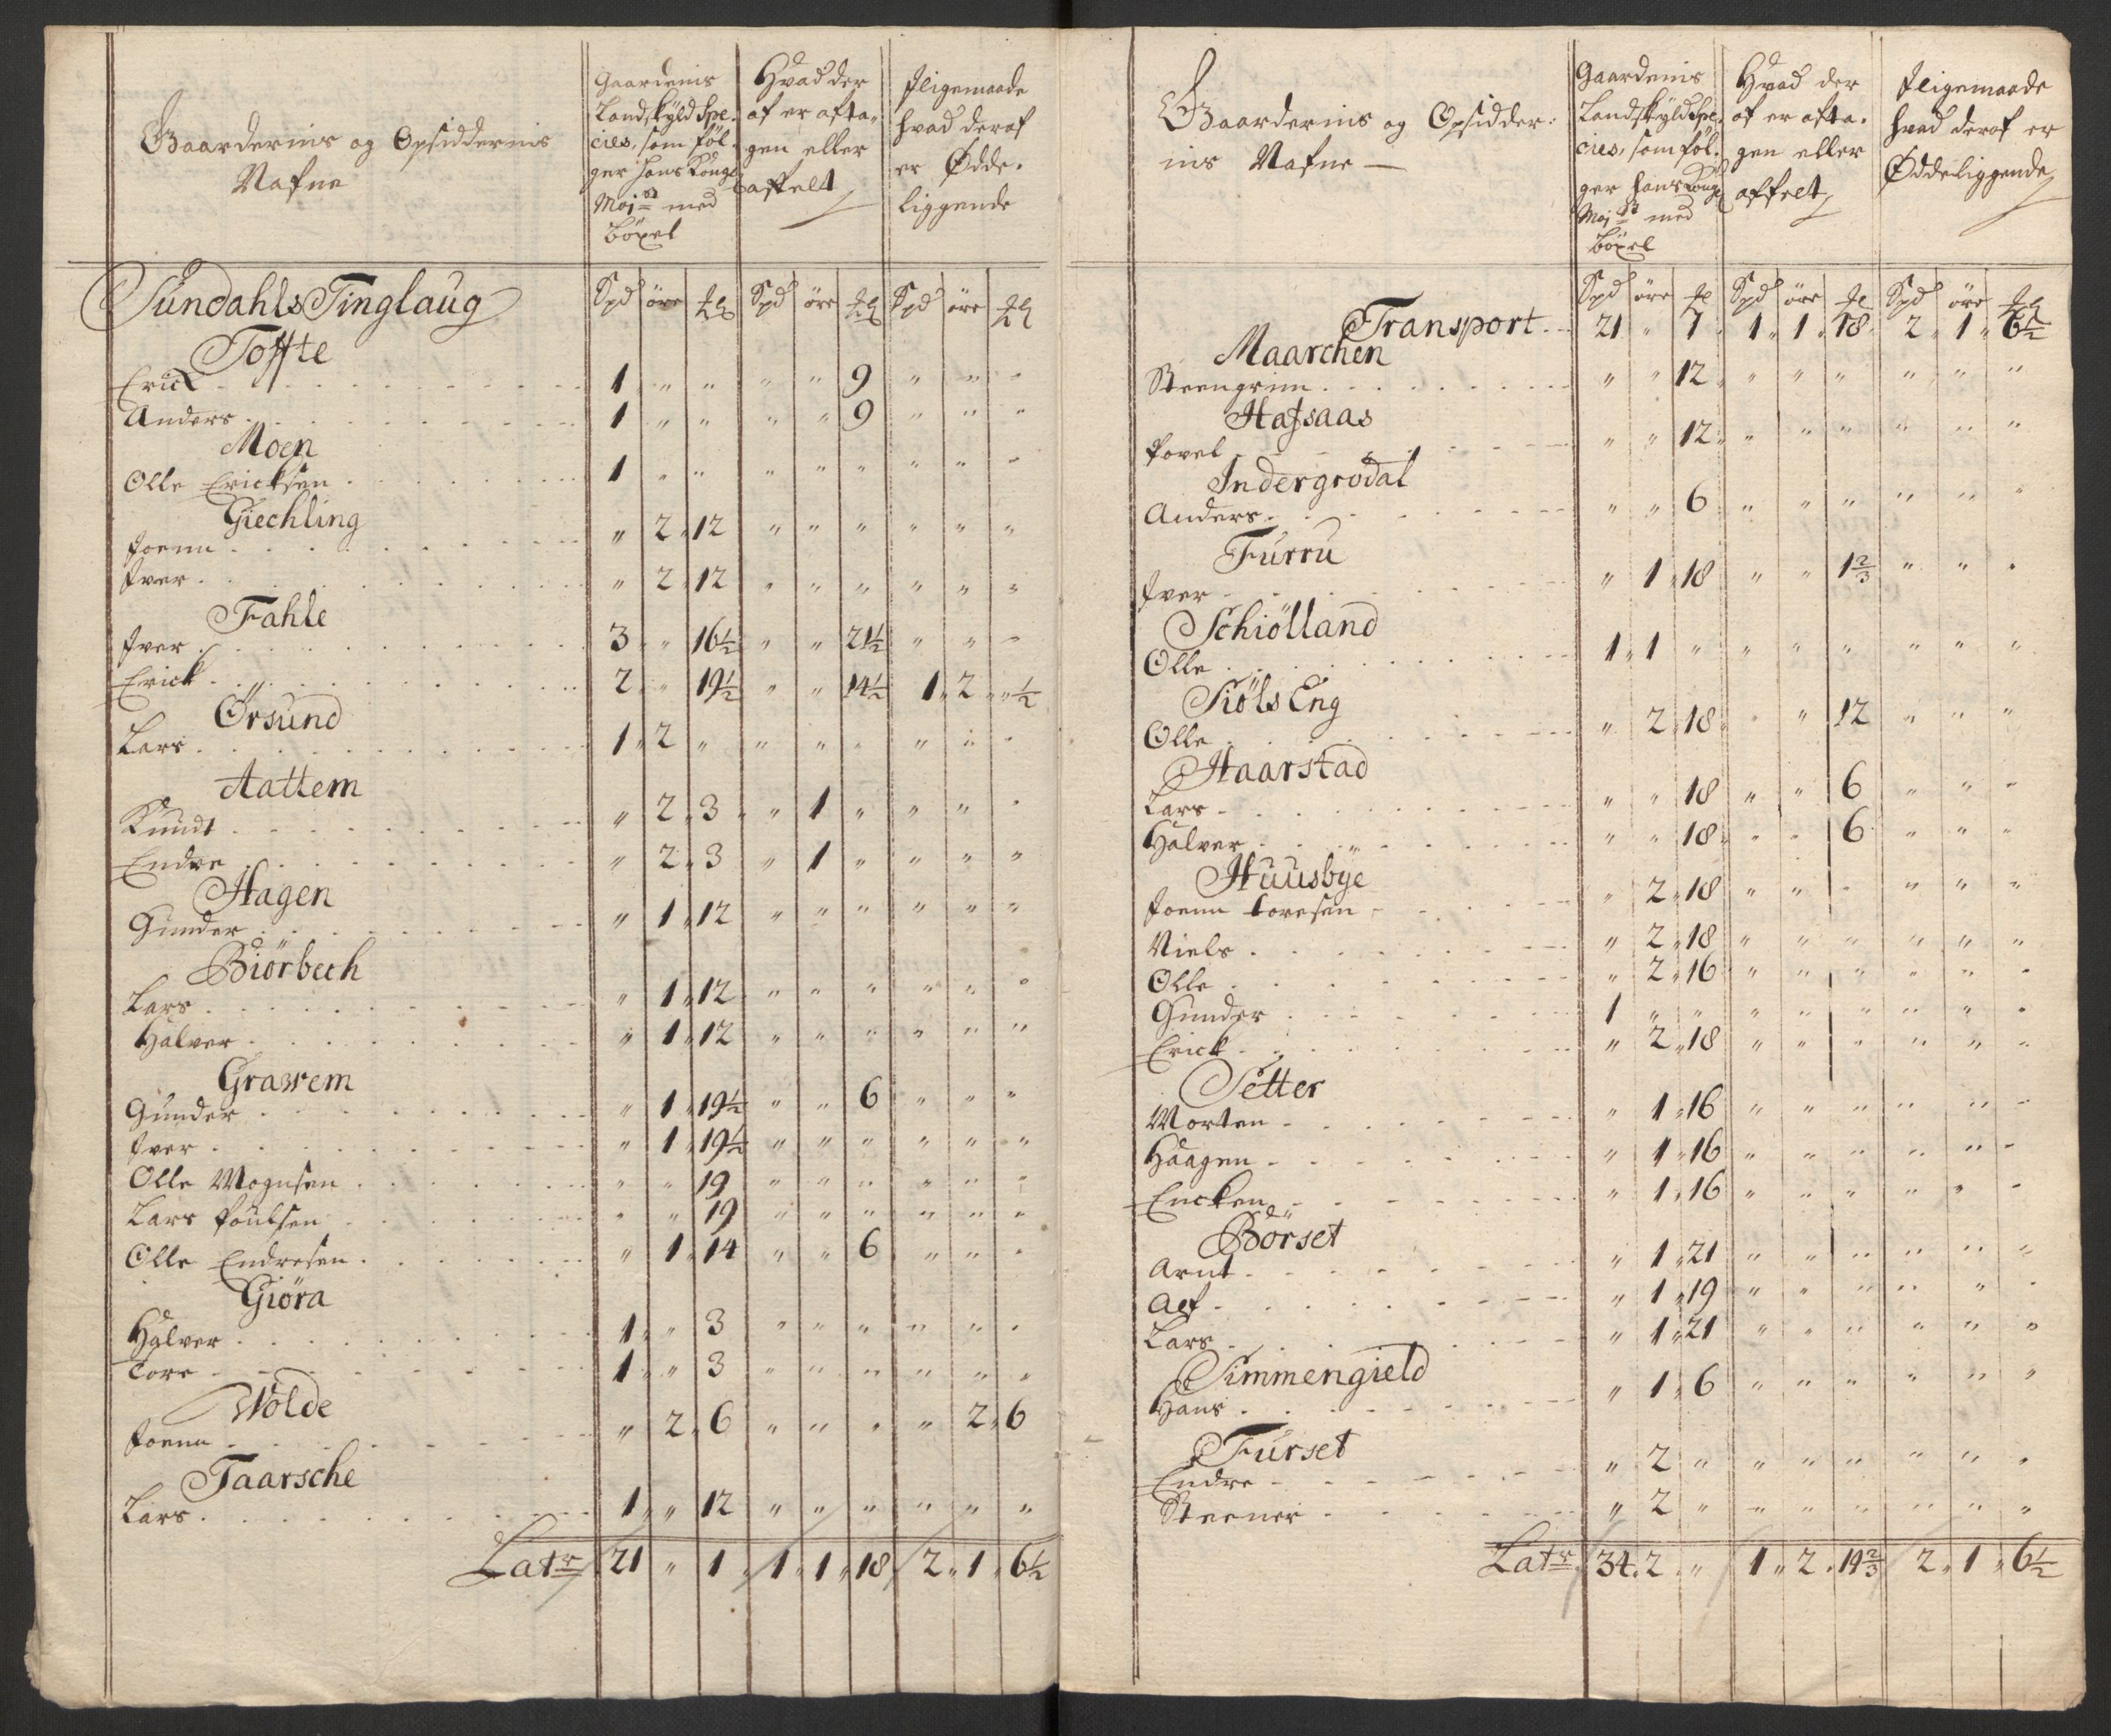 Gaardernis og Opsiddernis
Nafne
Gaardenis
Landskyld Spe-
cies, som føl-
ger Hans Kongl
Maj:st med
Böxel
Hvad der
af er afta-
gen eller
affelt
Iligemaade
hvad deraf
er Ödde-
liggende
Sundahls Tinglaug Spd öre Spd öre Spd öre
Toffte
Erick 1 " " " " 9 " " "
Anders 1 " " " " 9 " " "
Moen
Olle Ericksen 1 " " " " " " " "
Giechling
Joenn " 2 12 " " " " " "
Iver " 2 12 " " " " " "
Fahle
Iver 3 " 16½ " " 21½ " " "
Erick 2 " 19½ " " 14½ 1 2 " ½
Örsund
Lars 1 2 " " " " " " "
Aattem
Knudt " 2 3 " 1 " " " "
Endre " 2 3 " 1 " " " "
Hagen
Gunder " 1 12 " " " " " "
Biörbech
Lars " 1 12 " " " " " "
Halver " 1 12 " " " " " "
Grawem
Gunder " 1 19½ " " 6 " " "
Iver " 1 19½ " " " " " "
Olle Mognsen " " 19 " " " " " "
Lars Poulsen " " 19 " " " " " "
Olle Endresen " 1 14 " " 6 " " "
Giöra
Halver 1 " 3 " " " " " "
Tore 1 " 3 " " " " " "
Wolde
Joenn " 2 6 " " " " 2 6
Taarsche
Lars 1 " 12 " " " " " "
Latr 21 " 1 1 1 18 2 1 6½
Gaardernis og Opsidder-
nis Nafne
Gaardenis
Landskyld Spe-
cies, som föl-
ger Hans Kongl
Maj:st med
Böxel
Hvad der
af er afta-
gen eller
affelt
Iligemaade
hvad deraf er
Öddeliggende
Spd öre Spd öre Spd öre
Transport 21 " 1 1 1 18 2 1 6½
Maarchen
Steengrim " " 12 " " " " " "
Hafsaas
Povel " " 12 " " " " " "
Indergrödal
Anders " " 6 " " " " " "
Furru
Iver " 1 18 " " 1⅔ " " "
Schiölland
Olle 1 1 " " " " " " "
Siöls Eng
Olle " 2 18 " " 12 " " "
Haarstad
Lars " " 18 " " 6 " " "
Halver " " 18 " " 6 " " "
Huusbye
Joenn Toresen " 2 18 " " " " " "
Niels " 2 18 " " " " " "
Olle " 2 16 " " " " " "
Gunder 1 " " " " " " " "
Erick " 2 18 " " " " " "
Setter
Morten " 1 16 " " " " " "
Haagen " 1 16 " " " " " "
Encken " 1 16 " " " " " "
Börset
Arnt " 1 21 " " " " " "
Alf " 1 19 " " " " " "
Lars " 1 21 " " " " " "
Simmengield
Hans " 1 6 " " " " " "
Furset
Endre " 2 " " " " " " "
Steener " 2 " " " " " " "
Latr 34 2 " 1 2 19⅔ 2 1 6½